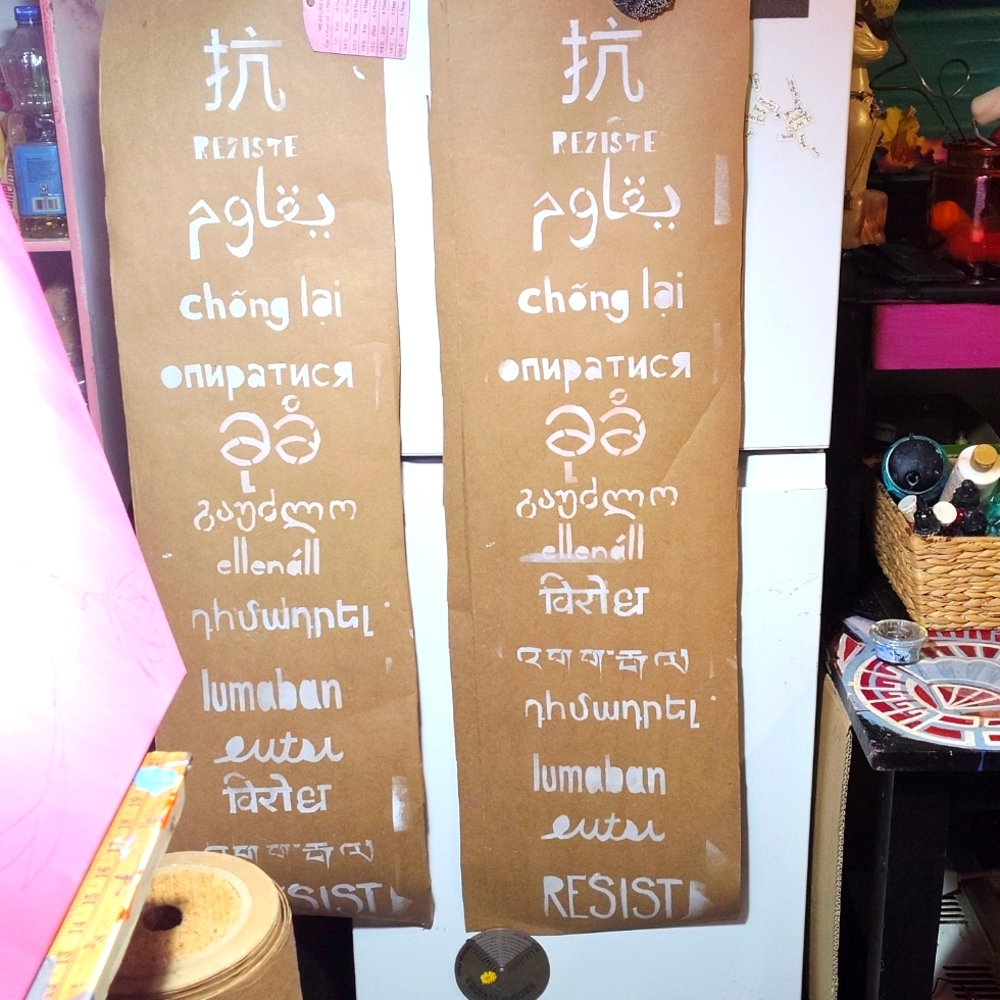 抗
REZISTE
يقاوم
chõng lại
опиратися
ခုခံ
გაუძლო
ellenáll
դիմադրել
lumaban
eutsi
विरोध
SIST
抗
REZISTE
يقاوم
chõng lại
опиратися
ခုခံ
გაუძლო
ellenáll
विरोध
դիմադրել
lumaban
eutsi
RESIST